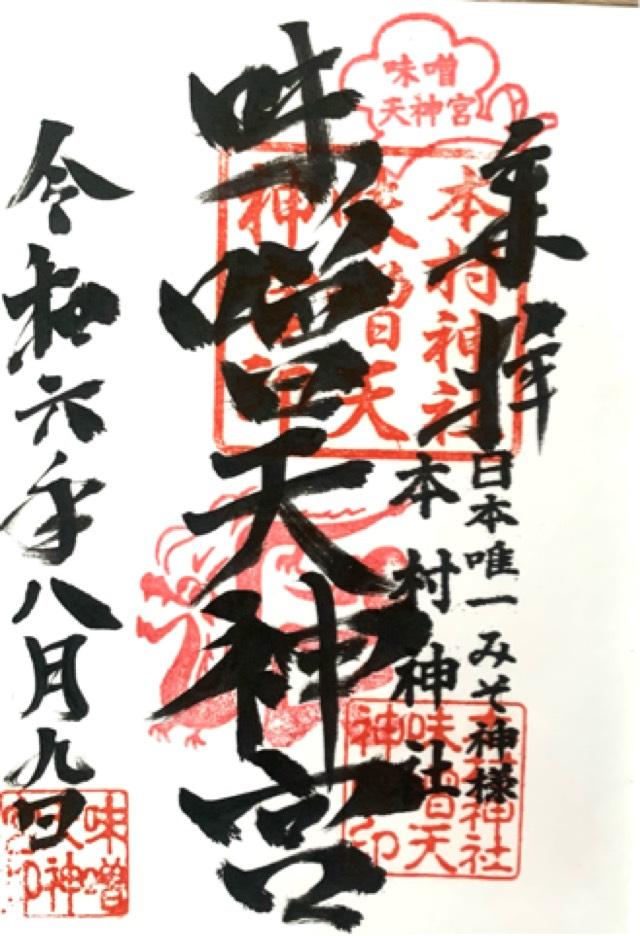 奉拝
日本唯一みそ神様
本村神社
味噌天神宮
令和六年八月九日
味噌
天神宮
本村神社
味噌天
神
味噌天
味噌
天神